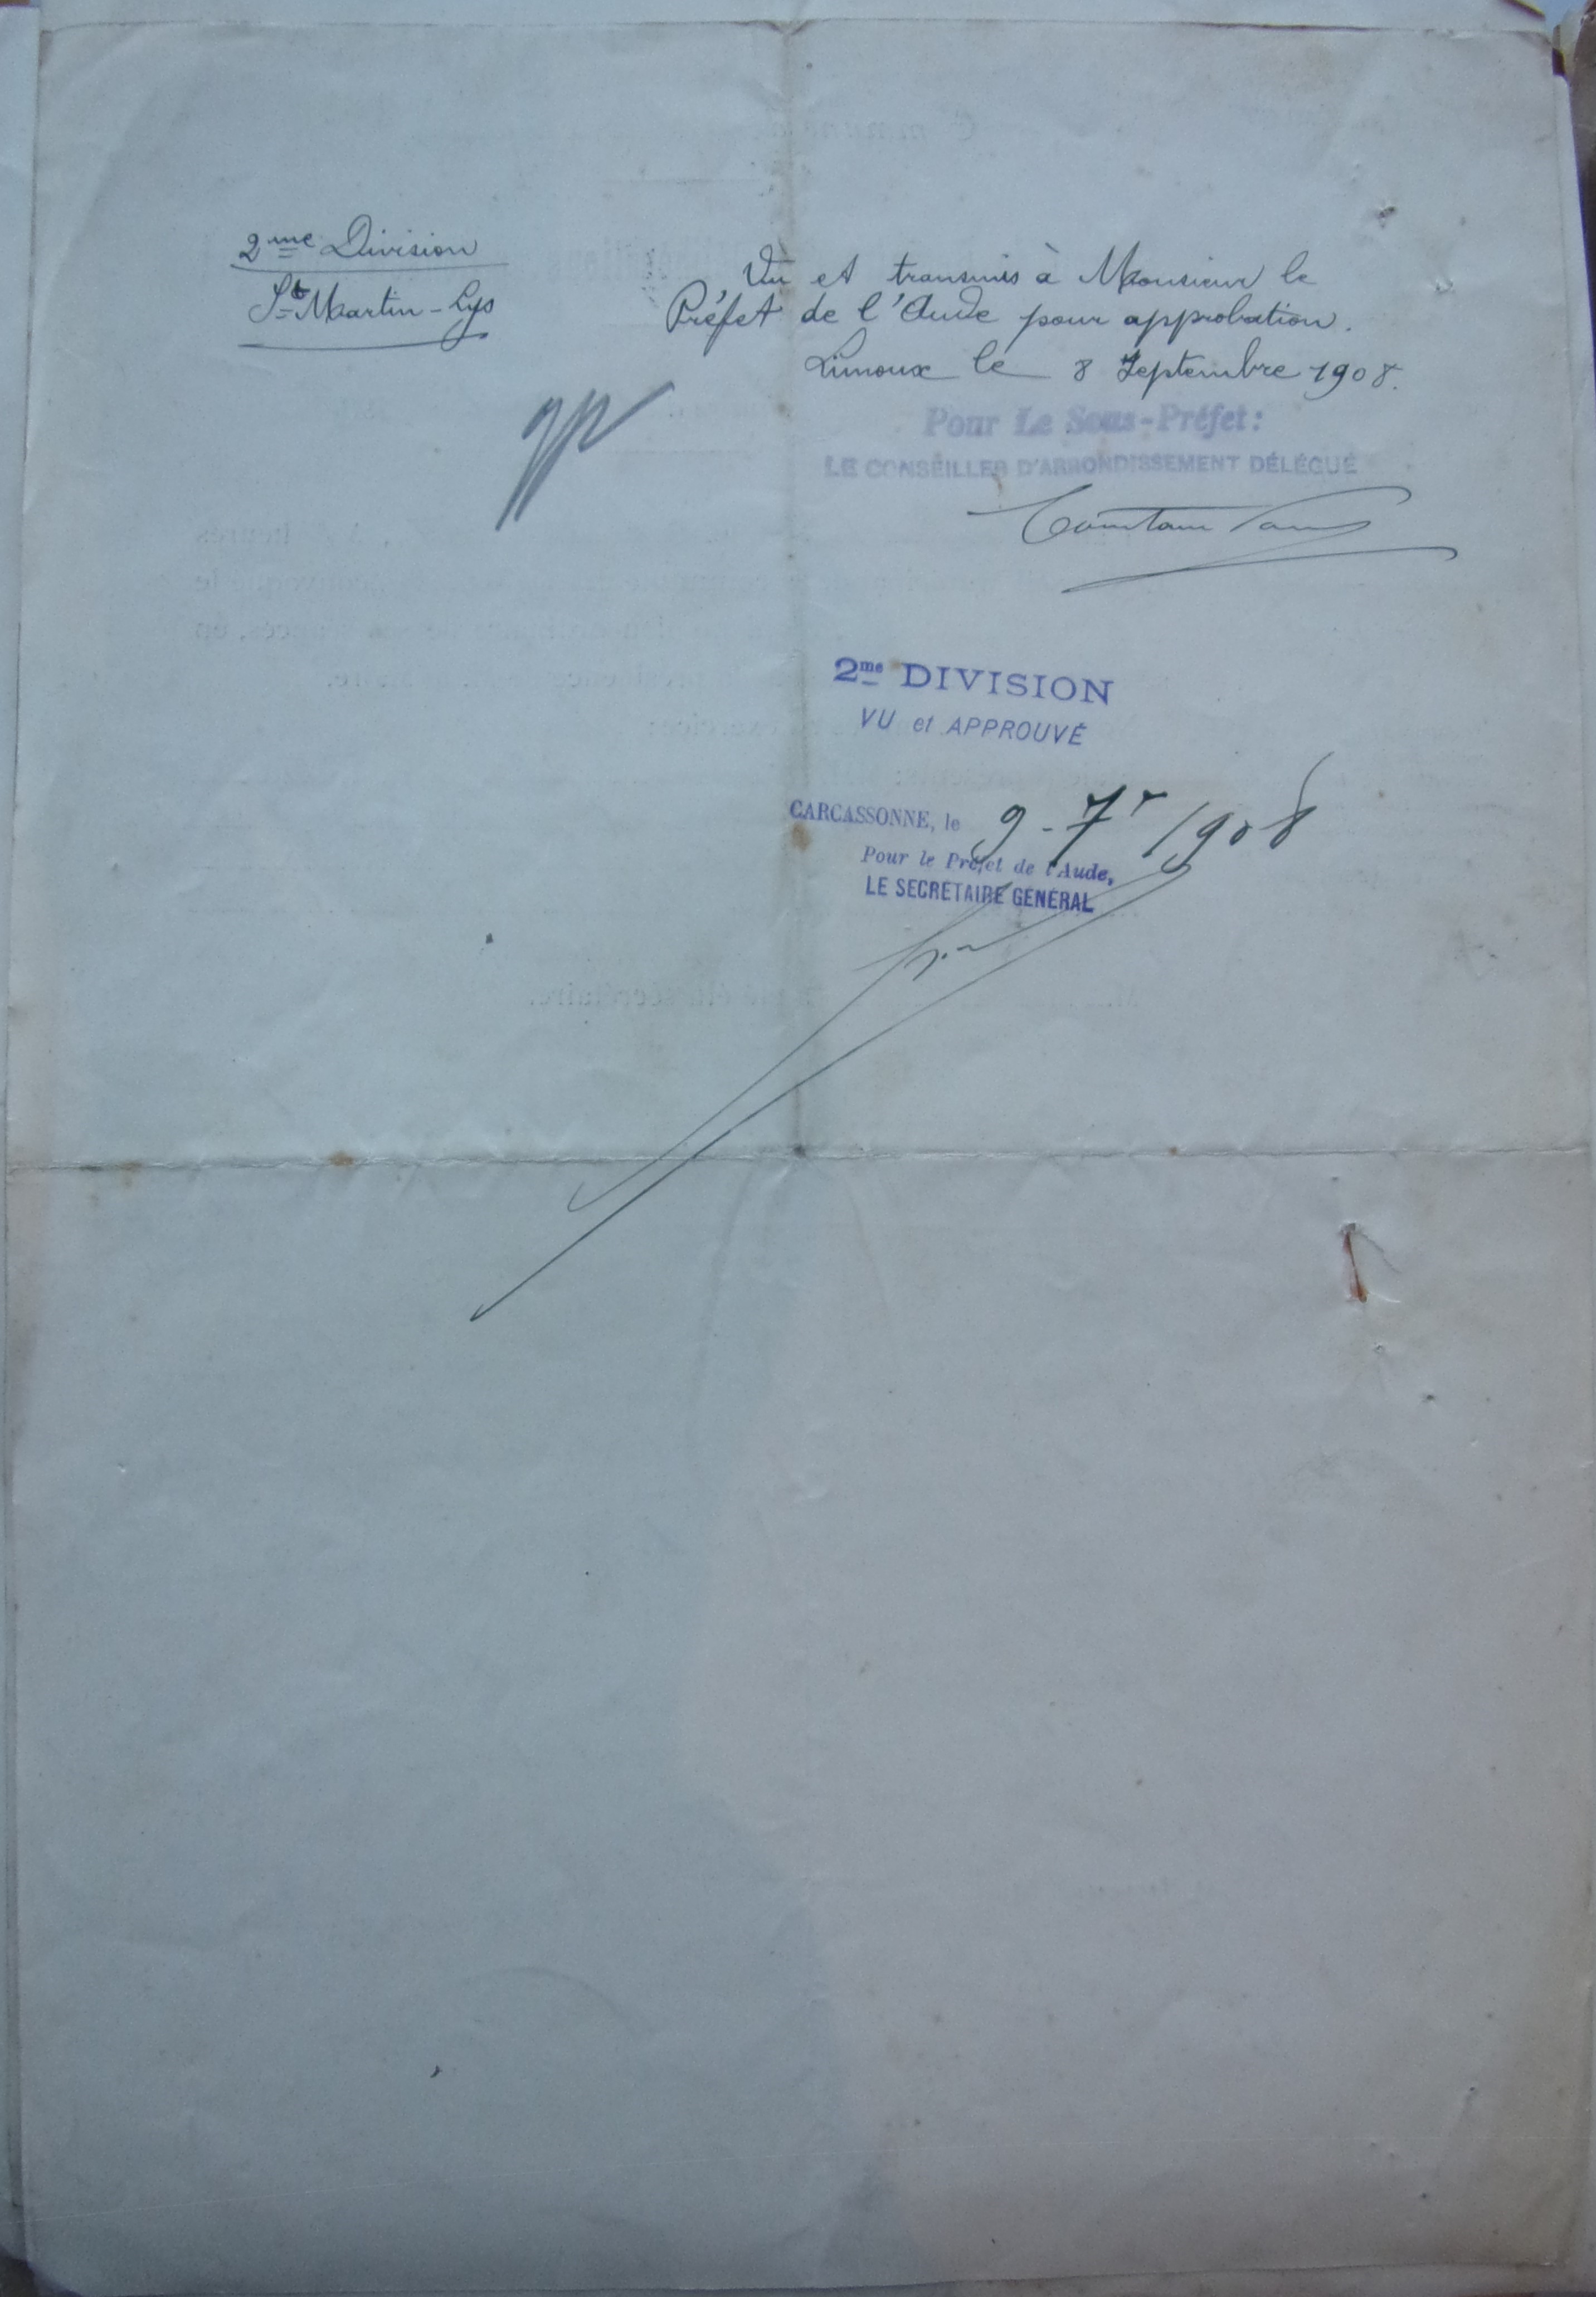 2me Division
St Martin-Lys
Vu et transmis à Monsieur le
Préfet de l'Aude pour approbation.
Limoux le 8 Septembre 1908.
Pour Le Sous-Préfet:
LE CONSEILLER D'ARRONDISSEMENT DÉLÉGUÉ
2me DIVISION
VU et APPROUVÉ
CARCASSONNE, le 9-7r 1908
Pour le Préfet de l'Aude,
LE SECRÉTAIRE GÉNÉRAL